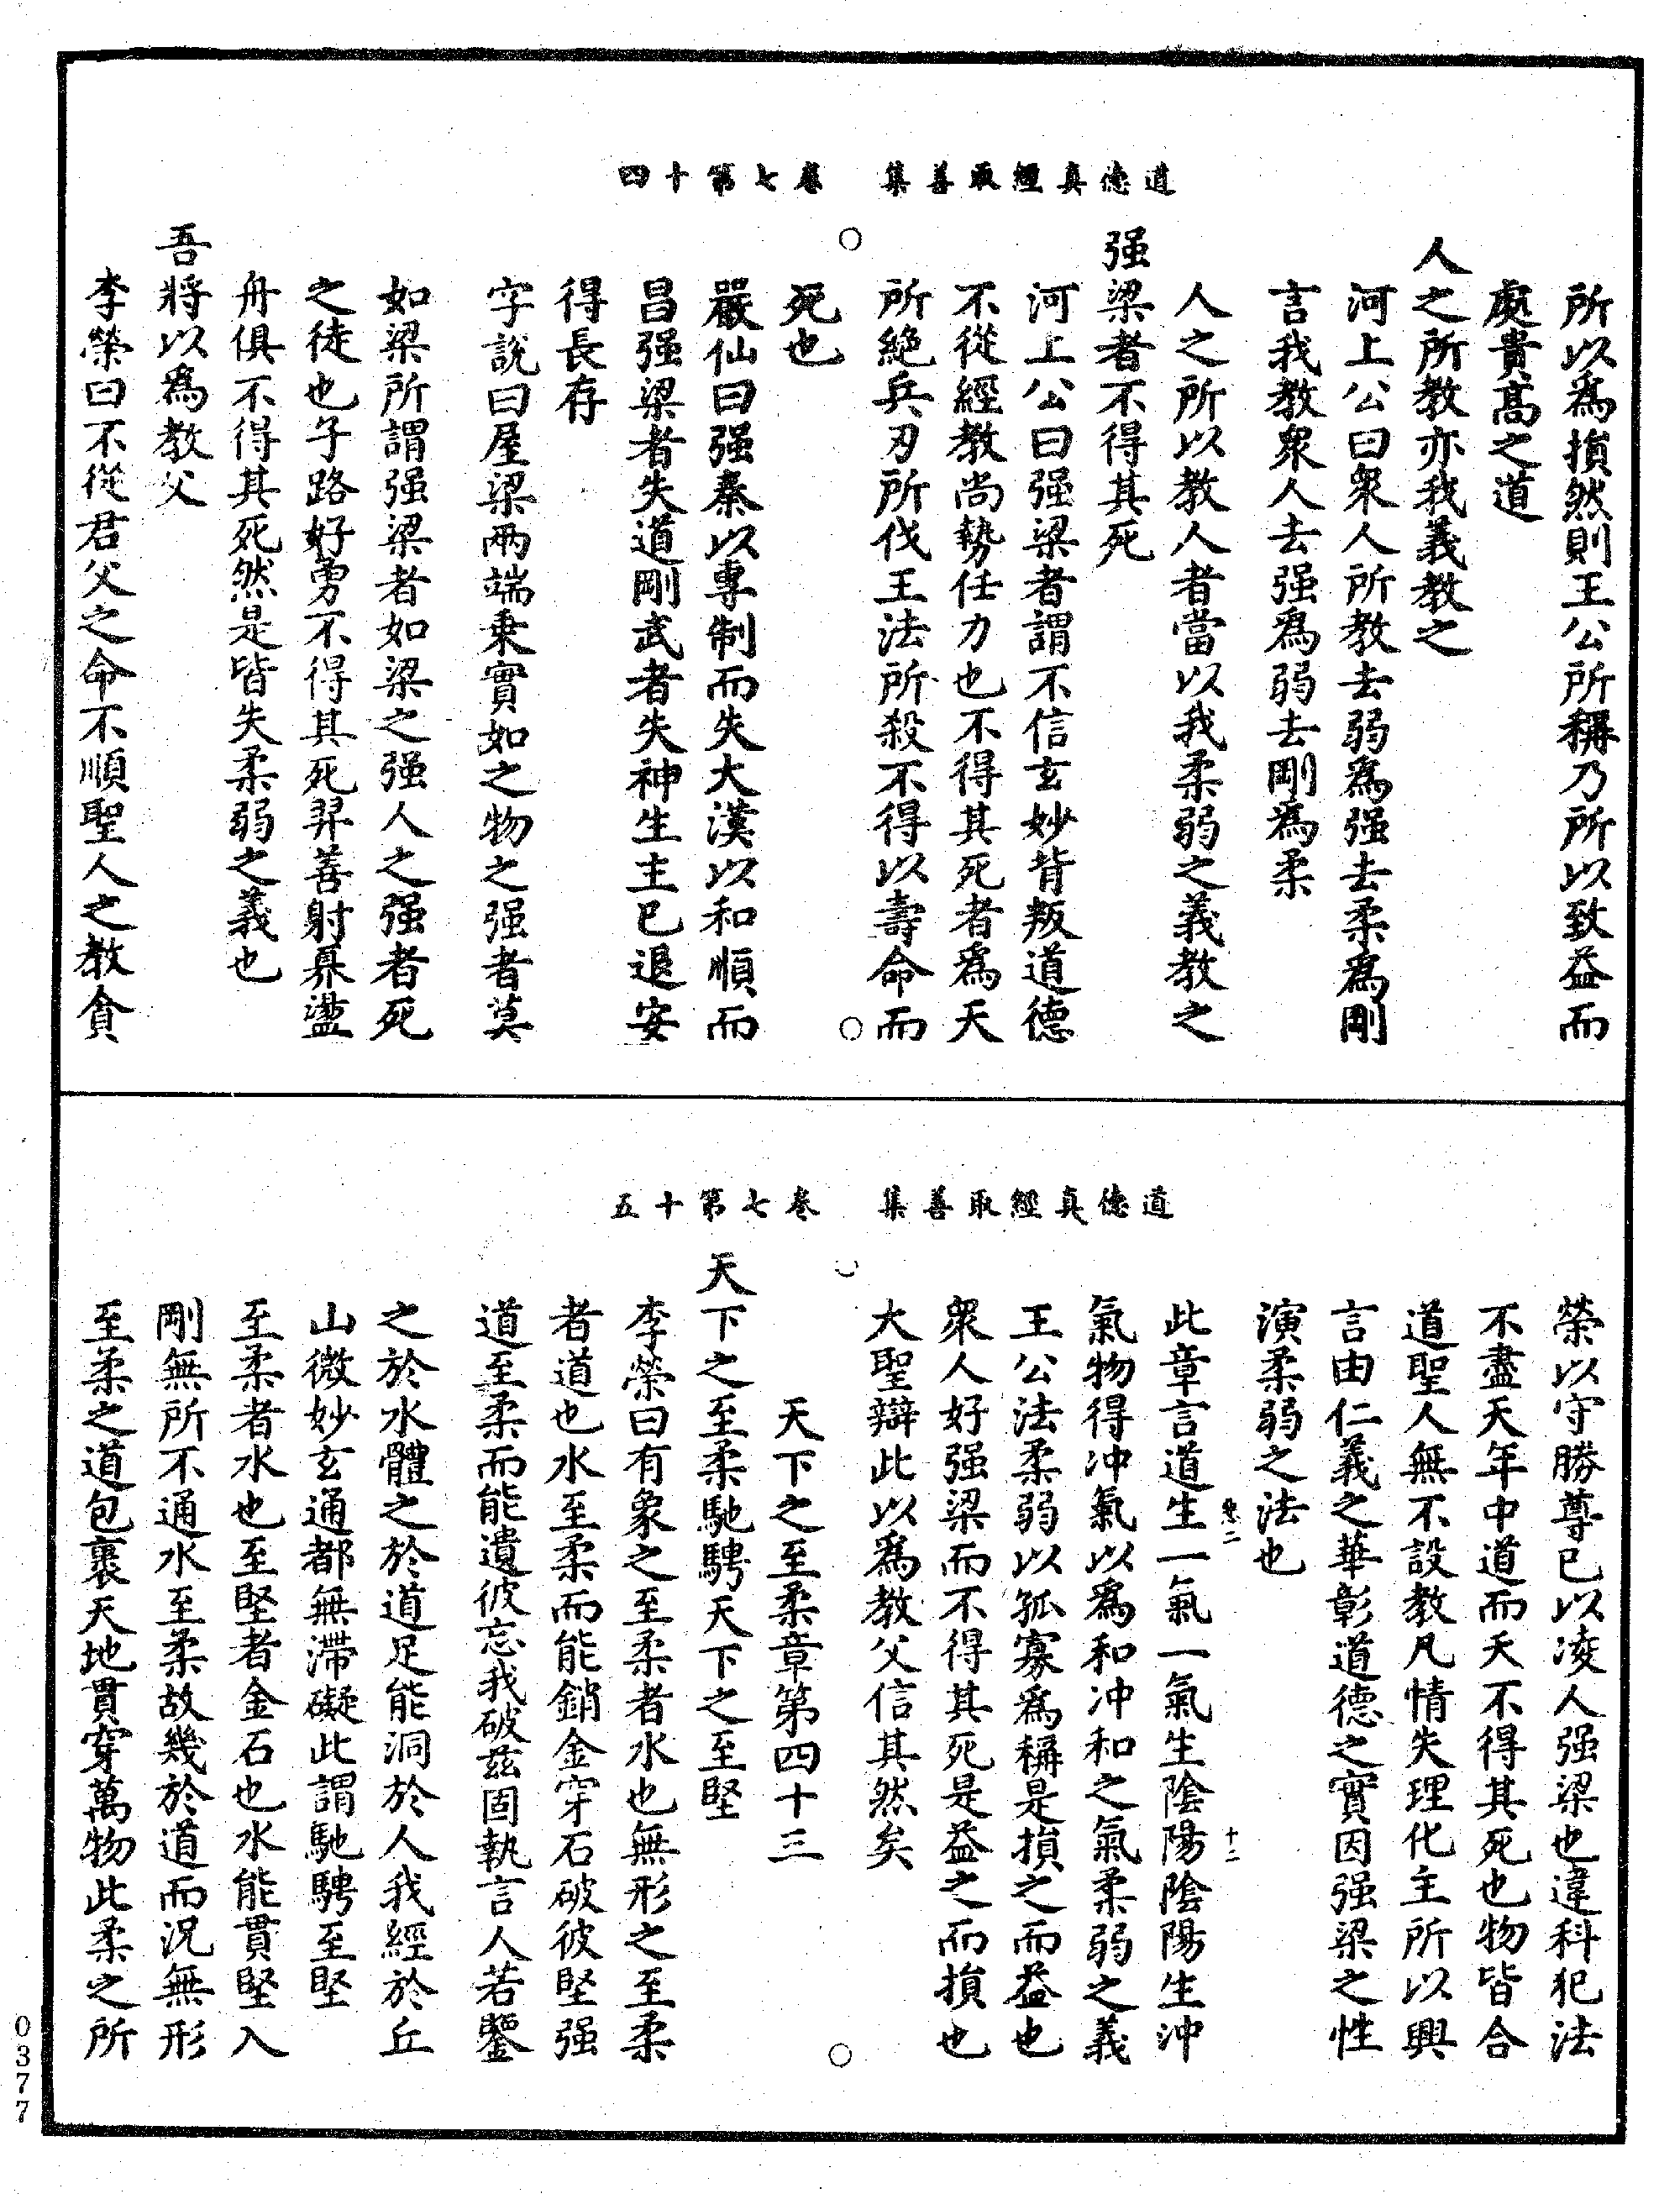 道德真經取善集　卷七第十四
所以爲損然則王公所稱乃所以致益而
處貴高之道
人之所教亦我義教之
河上公曰衆人所教去弱爲强去柔爲剛
言我教衆人去强爲弱去剛爲柔
人之所以教人者當以我柔弱之義教之
强梁者不得其死
河上公曰强梁者謂不信玄妙背叛道德
不從經教尚勢任力也不得其死者爲天
所絶兵刃所伐王法所殺不得以壽命而
死也
嚴仙曰强秦以專制而失大漢以和順而
昌强梁者失道剛武者失神生主已退安
得長存
字說曰屋梁兩端乗實如之物之强者莫
如梁所謂强梁者如梁之强人之强者死
之徒也子路好勇不得其死羿善射奡盪
舟俱不得其死然是皆失柔弱之義也
吾將以爲教父
李榮曰不從君父之命不順聖人之教貪
道德真經取善集　卷七第十五
榮以守勝尊已以凌人强梁也違科犯法
不盡天年中道而夭不得其死也物皆合
道聖人無不設教凡情失理化主所以興
言由仁義之華彰道德之實因强梁之性
演柔弱之法也
卷二　十二
此章言道生一氣一氣生陰陽陰陽生沖
氣物得冲氣以爲和冲和之氣柔弱之義
王公法柔弱以孤寡爲稱是損之而益也
衆人好强梁而不得其死是益之而損也
大聖辯此以爲教父信其然矣
天下之至柔章第四十三
天下之至柔馳騁天下之至堅
李榮曰有象之至柔者水也無形之至柔
者道也水至柔而能銷金穿石破彼堅强
道至柔而能遺彼忘我破兹固執言人若鑒
之於水體之於道足能洞於人我經於丘
山微妙玄通都無滯礙此謂馳騁至堅
至柔者水也至堅者金石也水能貫堅入
剛無所不通水至柔故幾於道而況無形
至柔之道包裹天地貫穿萬物此柔之所
0377